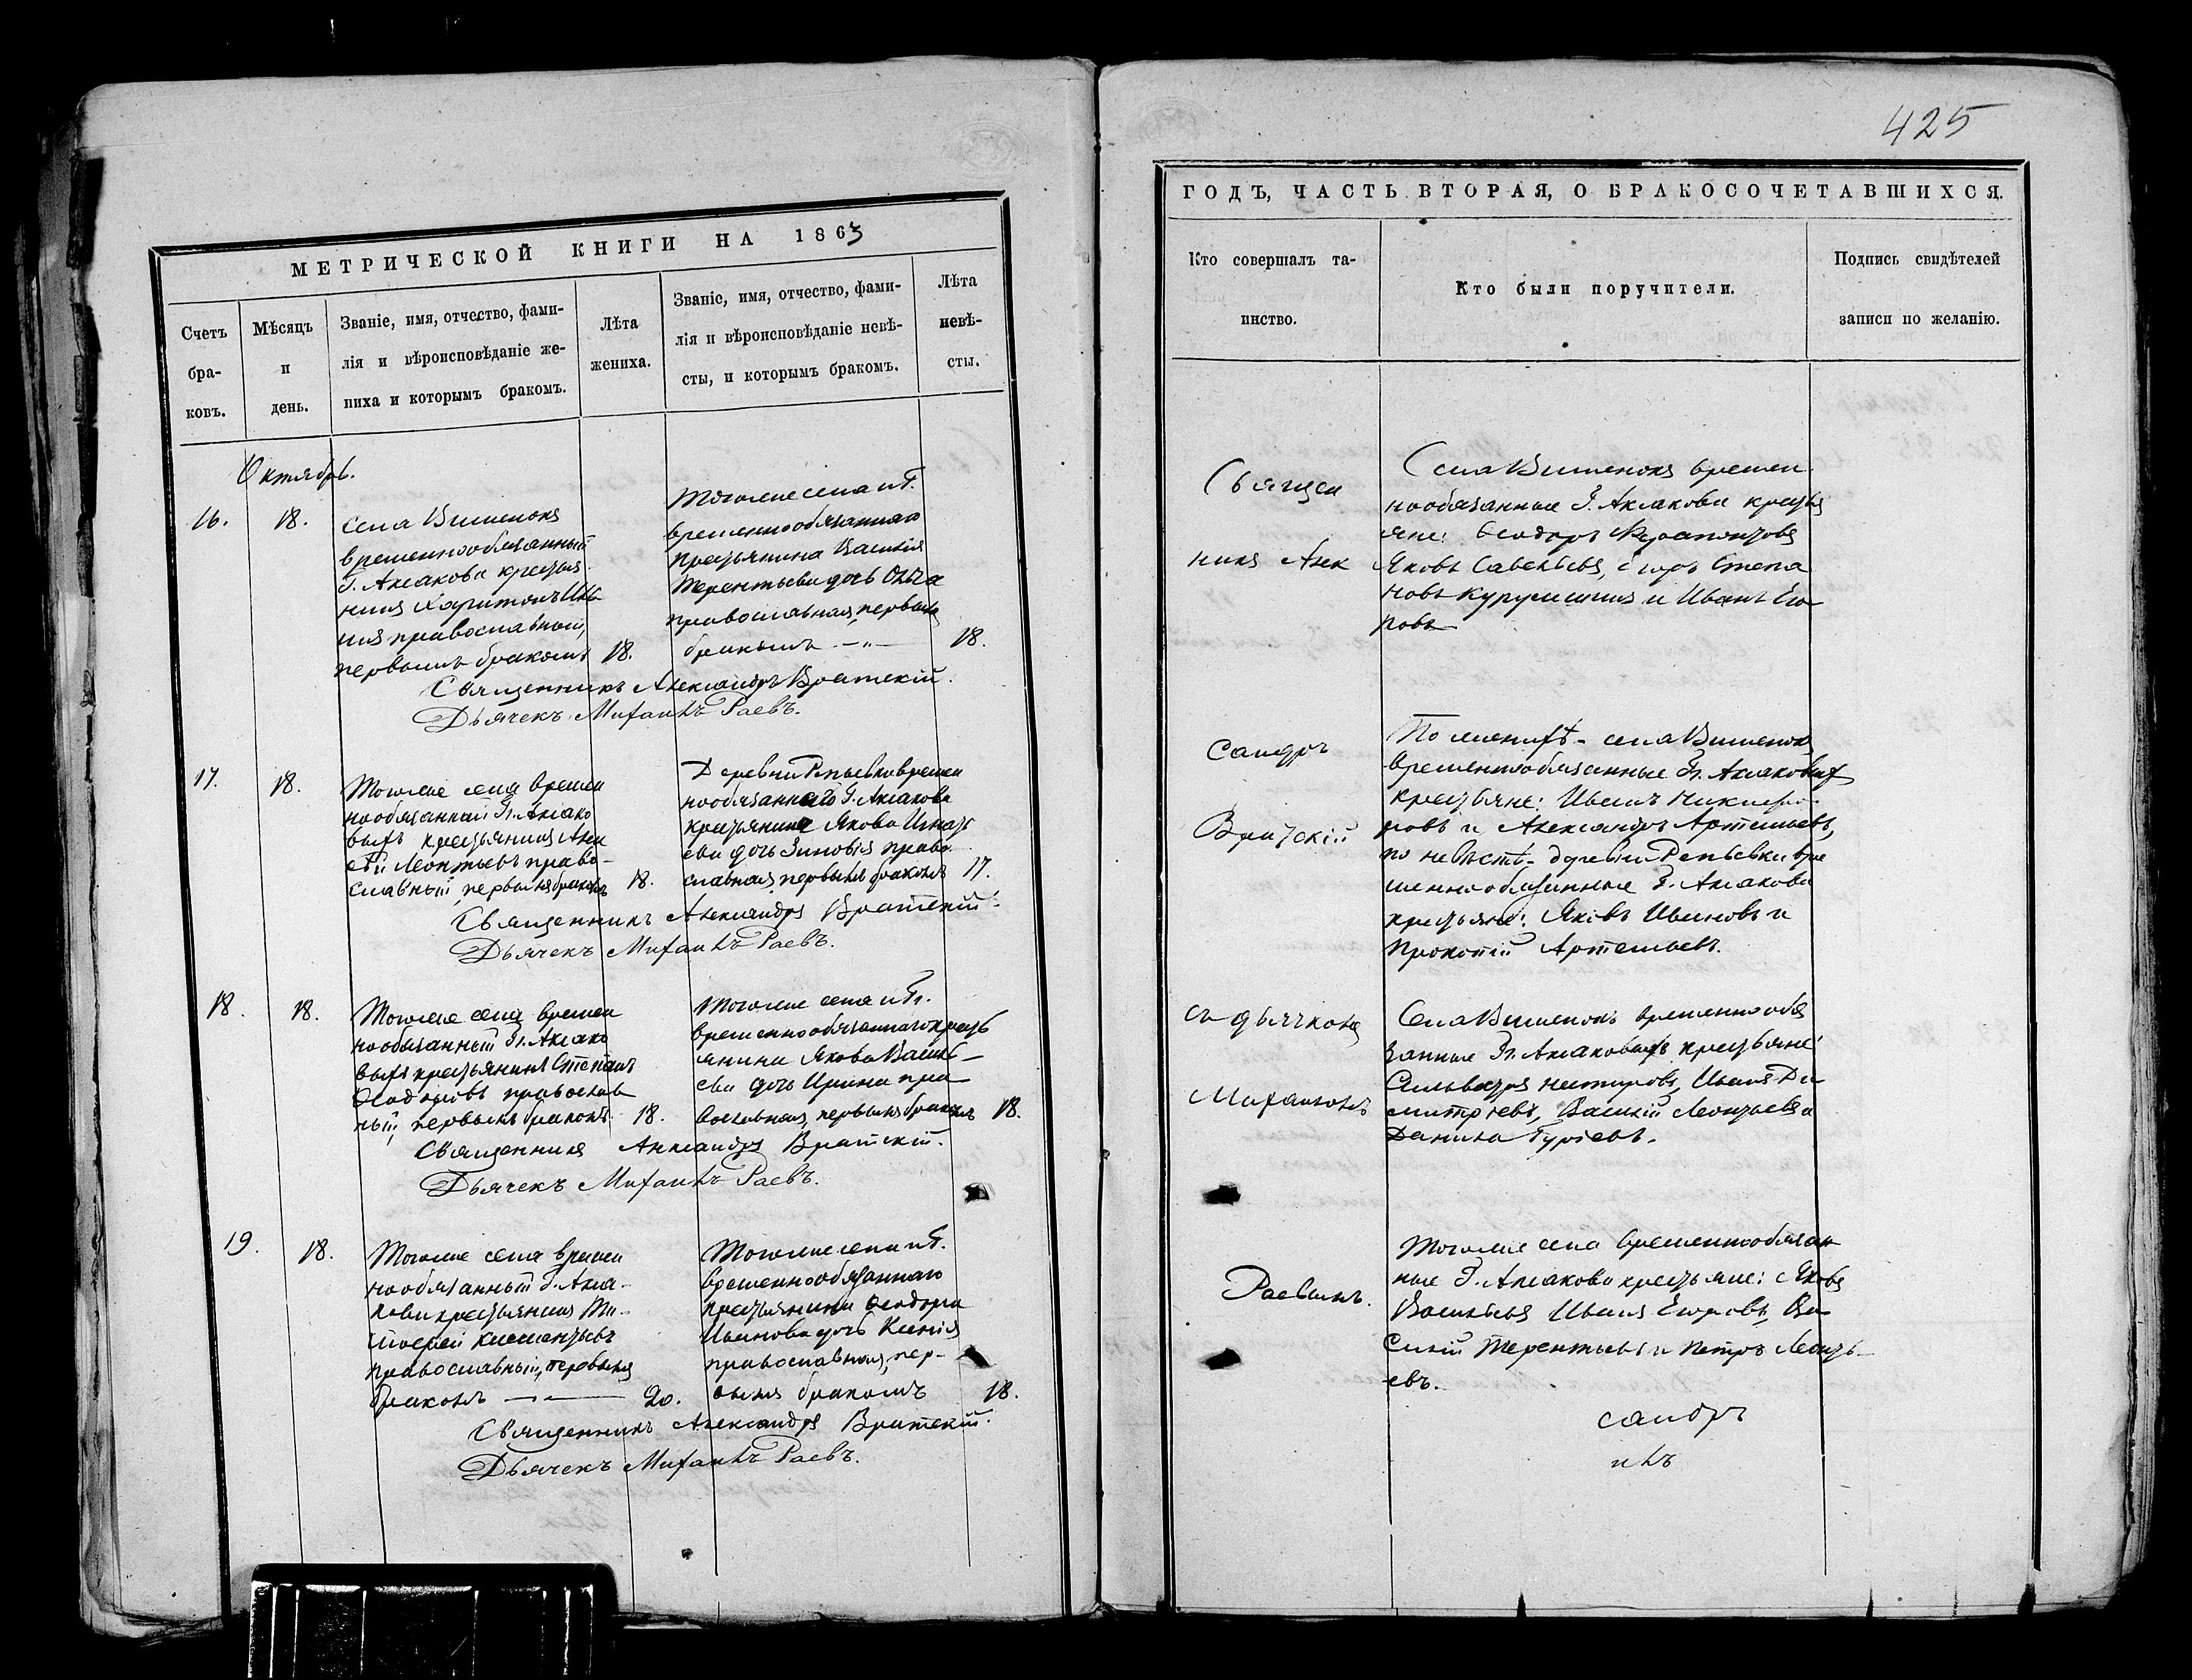 425
МЕТРИЧЕСКОЙ КНИГИ НА 1863
Счетъ бра-ковъ.
Мѣсяцъ и день.
Званіе, имя, отчество, фами-
лія и вѣроисповѣданіе же-
ниха и которымъ бракомъ.
Лѣта жениха.
Званіе, имя, отчество, фами-
лія и вѣроисповѣданіе невѣ-
сты, и которымъ бракомъ.
Лѣта невѣ-сты.
Октябрь.
16.
18.
Села Вишенокъ
временнообязанный
Г. Аксакова крестья
нинъ Харитонъ
православный,
первымъ бракомъ
18.
Тогоже села и Г.
временнообязаннаго
крестьянина Василія
Терентьева дочь Ольга
православная, первымъ
бракомъ —„—
18.
Священникъ Александръ Вратскій.
Дьячекъ Михаилъ Раевъ.
17.
18.
Тогоже села времен
нообязанный Гг. Аксако
выхъ крестьянинъ Алек
сѣй Леонтьевъ право-
славный, первымъ бракомъ
18.
Деревни Репьевки времен
нообязаннаго Г. Аксакова
крестьянина Якова Игнать
ева дочь Зиновія право
славная, первымъ бракомъ
17.
Священникъ Александръ Вратскій.
Дьячекъ Михаилъ Раевъ.
18.
18.
Тогоже села времен
нообязанный Гг. Аксако
выхъ крестьянинъ Степанъ
православ
ный, первымъ бракомъ
18.
Тогоже села и Гг.
временнообязаннаго кресть
янина Якова Василь-
ева дочь Ирина пра
вославная, первымъ бракомъ
18.
Священникъ Александръ Вратскій.
Дьячекъ Михаилъ Раевъ.
19.
18.
Тогоже села времен
нообязанный Г. Акса-
кова крестьянинъ Ти-
мофей Климентьевъ
православный, первымъ
бракомъ —„—
20.
Тогоже села и Г.
временнообязаннаго
крестьянина Ѳеодора
Иванова дочь Ксенія
православная, пер-
вымъ бракомъ
18.
Священникъ Александръ Вратскій.
Дьячекъ Михаилъ Раевъ.
ГОДЪ, ЧАСТЬ ВТОРАЯ, О БРАКОСОЧЕТАВШИХСЯ.
Кто совершалъ та-
инство.
Кто были поручители.
Подпись свидѣтелей
записи по желанію.
Священ
никъ Алек
сандръ
Вратскій
съ дьячкомъ
Михаиломъ
Раевымъ.
Села Вишенокъ времен
нообязанные Г. Аксакова кресть
яне: Ѳеодоръ Ферапонтовъ
Яковъ Савельевъ, Егоръ Степа
новъ и Иванъ Его
ровъ
По женихѣ - села Вишенокъ
временнообязанные Гг. Аксаковыхъ
крестьяне: Иванъ Никифо-
ровъ и Александръ Артемьевъ,
по невѣстѣ - деревни Репьевки вре
меннообязанные Г. Аксакова
крестьяне: Яковъ Ивановъ и
Прокопій Артемьевъ.
Села Вишенокъ временнообя
занные Гг. Аксаковыхъ крестьяне
Иванъ Ди
митріевъ, Василій Леонтьевъ и
Данила Гурьевъ.
Тогоже села временнообязан
ные Г. Аксакова крестьяне: Яковъ
Васильевъ Иванъ Егоровъ, Ва-
силій Терентьевъ и Петръ Леонть-
евъ.
сандръ
илъ